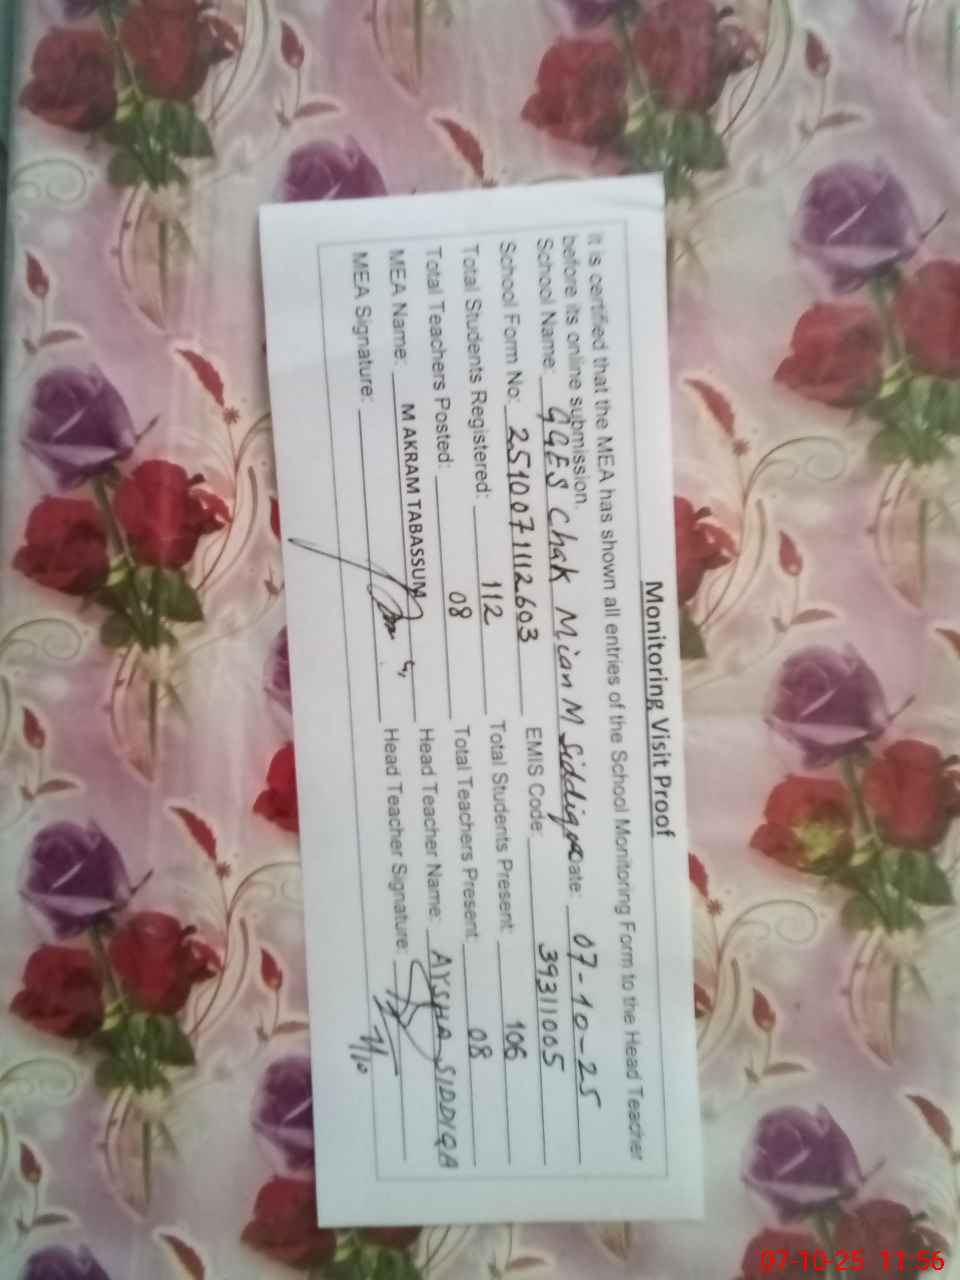 Monitoring Visit Proof
It is certified that the MEA has shown all entries of the School Monitoring Form to the Head Teacher
before its online submission.
School Name: GGES Chak Mian M Siddique Date: 07-10-25
School Form No: 2510071112603 EMIS Code: 39311005
Total Students Registered: 112 Total Students Present: 106
Total Teachers Posted: 08 Total Teachers Present: 08
MEA Name: M AKRAM TABASSUM Head Teacher Name: AYSHA SIDDIQA
MEA Signature: Head Teacher Signature:
7/10
07-10-25 11:56